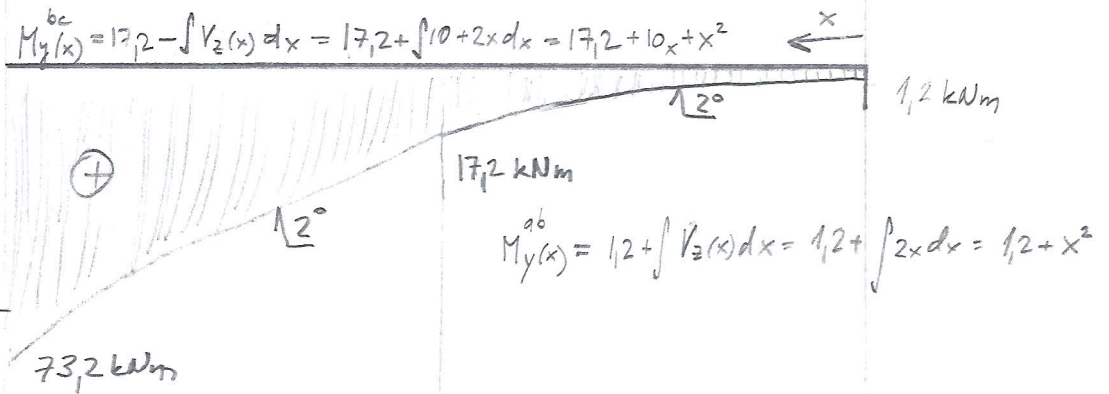 My^bc(x) = 17,2 - ∫Vz(x) dx = 17,2 + ∫10 + 2x dx = 17,2 + 10x + x²
x
2°
1,2 kNm
+
17,2 kNm
2°
My^ab(x) = 1,2 + ∫Vz(x) dx = 1,2 + ∫2x dx = 1,2 + x²
73,2 kNm